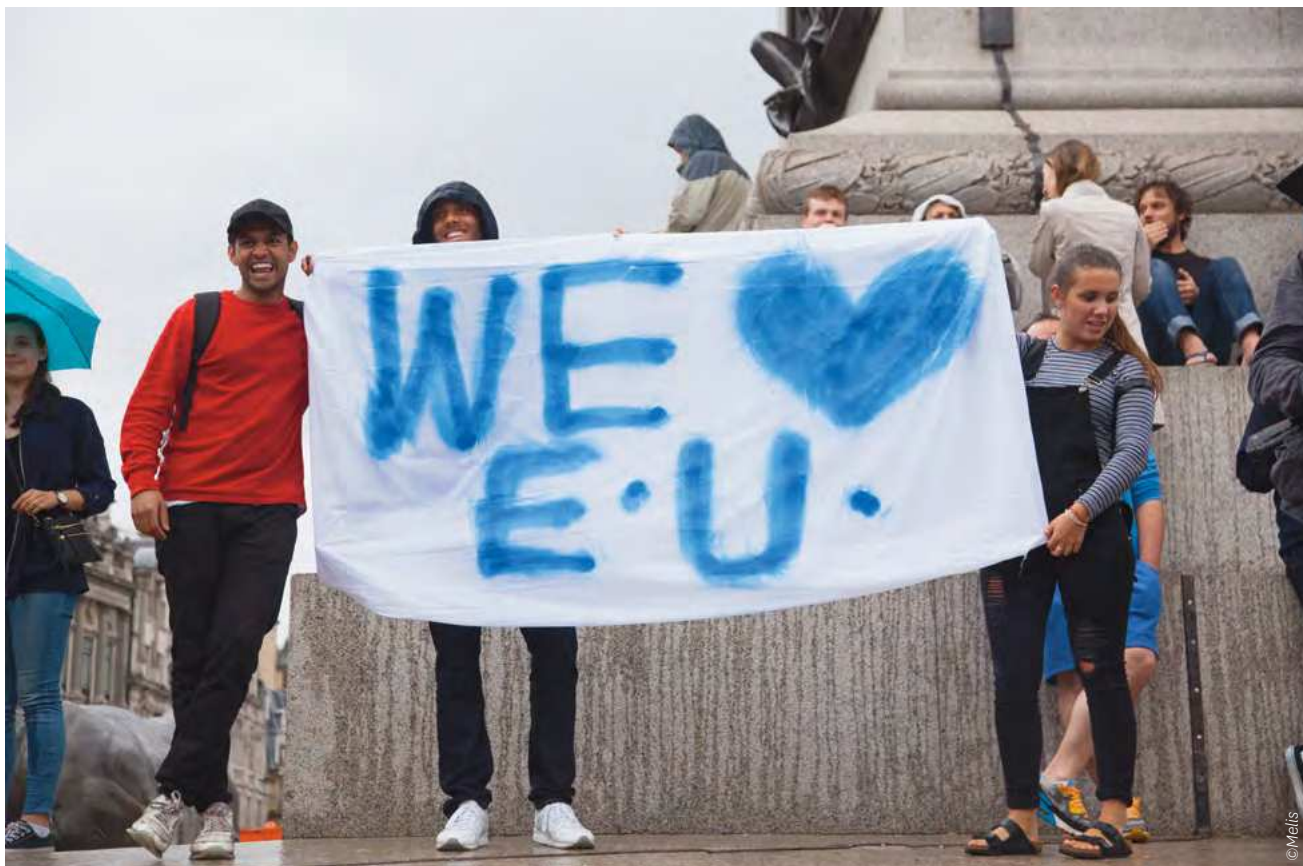 WE ♥
E.U.
©Melis